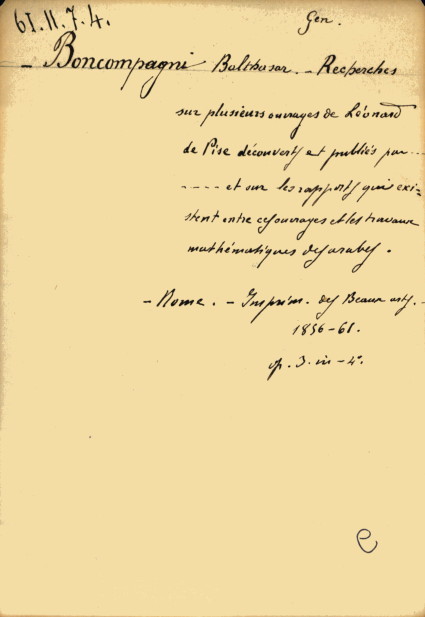 61.11.7.4.
Gen.
- Boncompagni Balthasar. - Recherches
sur plusieurs ouvrages de Léonard
de Pise découverts et publiés par ...
---- et sur les rapports qui exi-
stent entre ces ouvrages et les travaux
mathématiques des arabes.
- Rome. - Imprim. des Beaux arts. -
1856-61.
op. 3. in-4°.
e